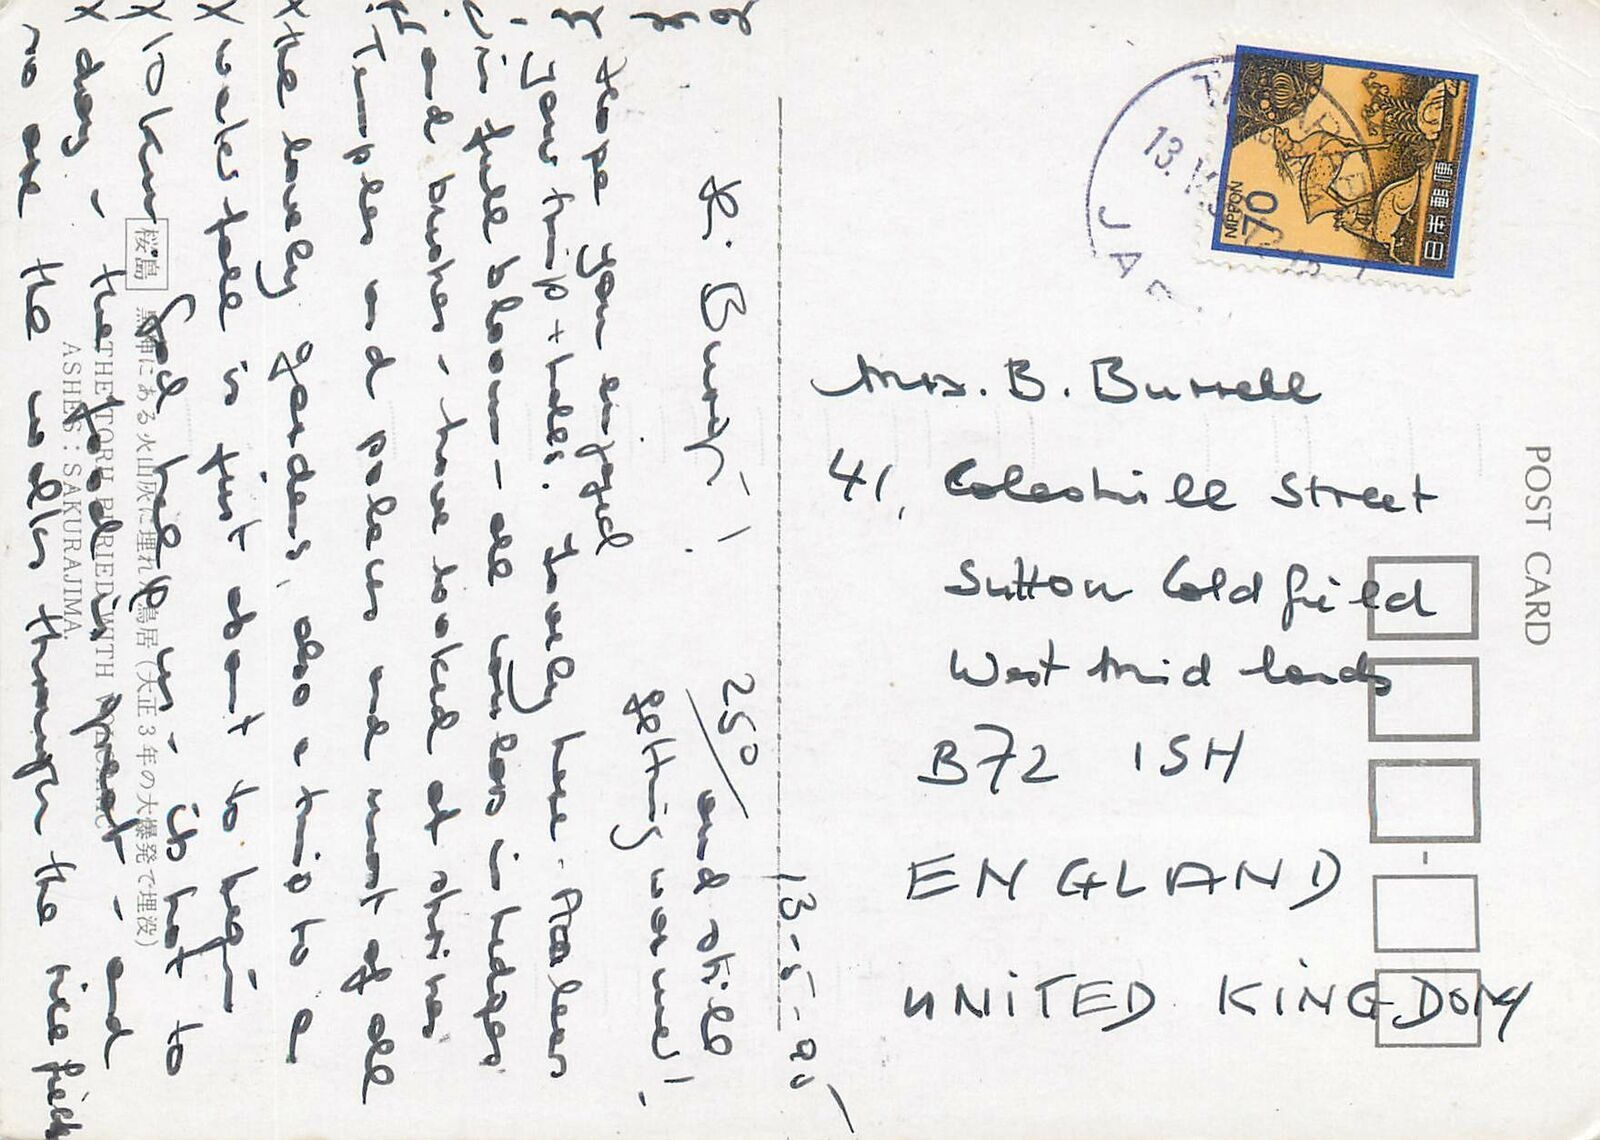 13-5-
25° and still
getting warmer!
Hope you enjoyed
your trip + hols. Lovely here. Azaleas
in full bloom - all colours in hedges
and bushes - have looked at shrines
Temples and palaces and most of all
the lovely gardens, also a trip to a
waterfall is just about to begin
God help us - its hot to
day - the food is great - and
no are the walks through the rice fields
桜島 黒神にある火山灰に埋れた鳥居(大正3年の大爆発で埋没)
THE TORII BURIED WITH VOLCANIC
ASHES : SAKURAJIMA.
POST CARD
Mrs. B. Burrell
41, Coleshill Street
Sutton Coldfield
West Midlands
B72 1SH
ENGLAND
UNITED KINGDOM
NIPPON
70
日本郵便
13.
JAPAN